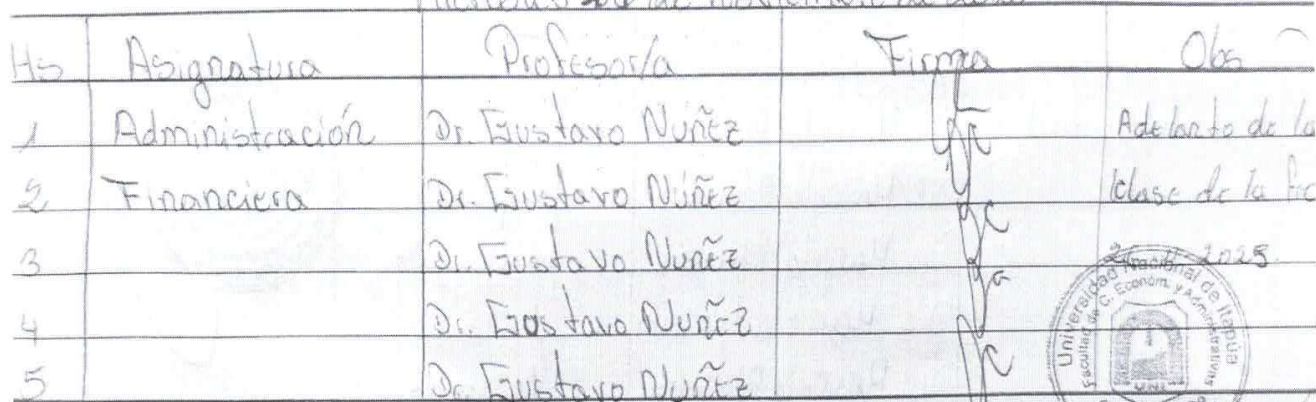 de noviembre
Hs Asignatura Profesor/a Firma Obs
1 Administración Dr. Gustavo Nuñez Adelanto de la
2 Financiera Dr. Gustavo Núñez clase de la
3 Dr. Gustavo Nuñez 2025
4 Dr. Gustavo Nuñez
5 Dr. Gustavo Nuñez
Universidad Nacional de Itapúa
Facultad de C. Econom. y Administrativas
UNI